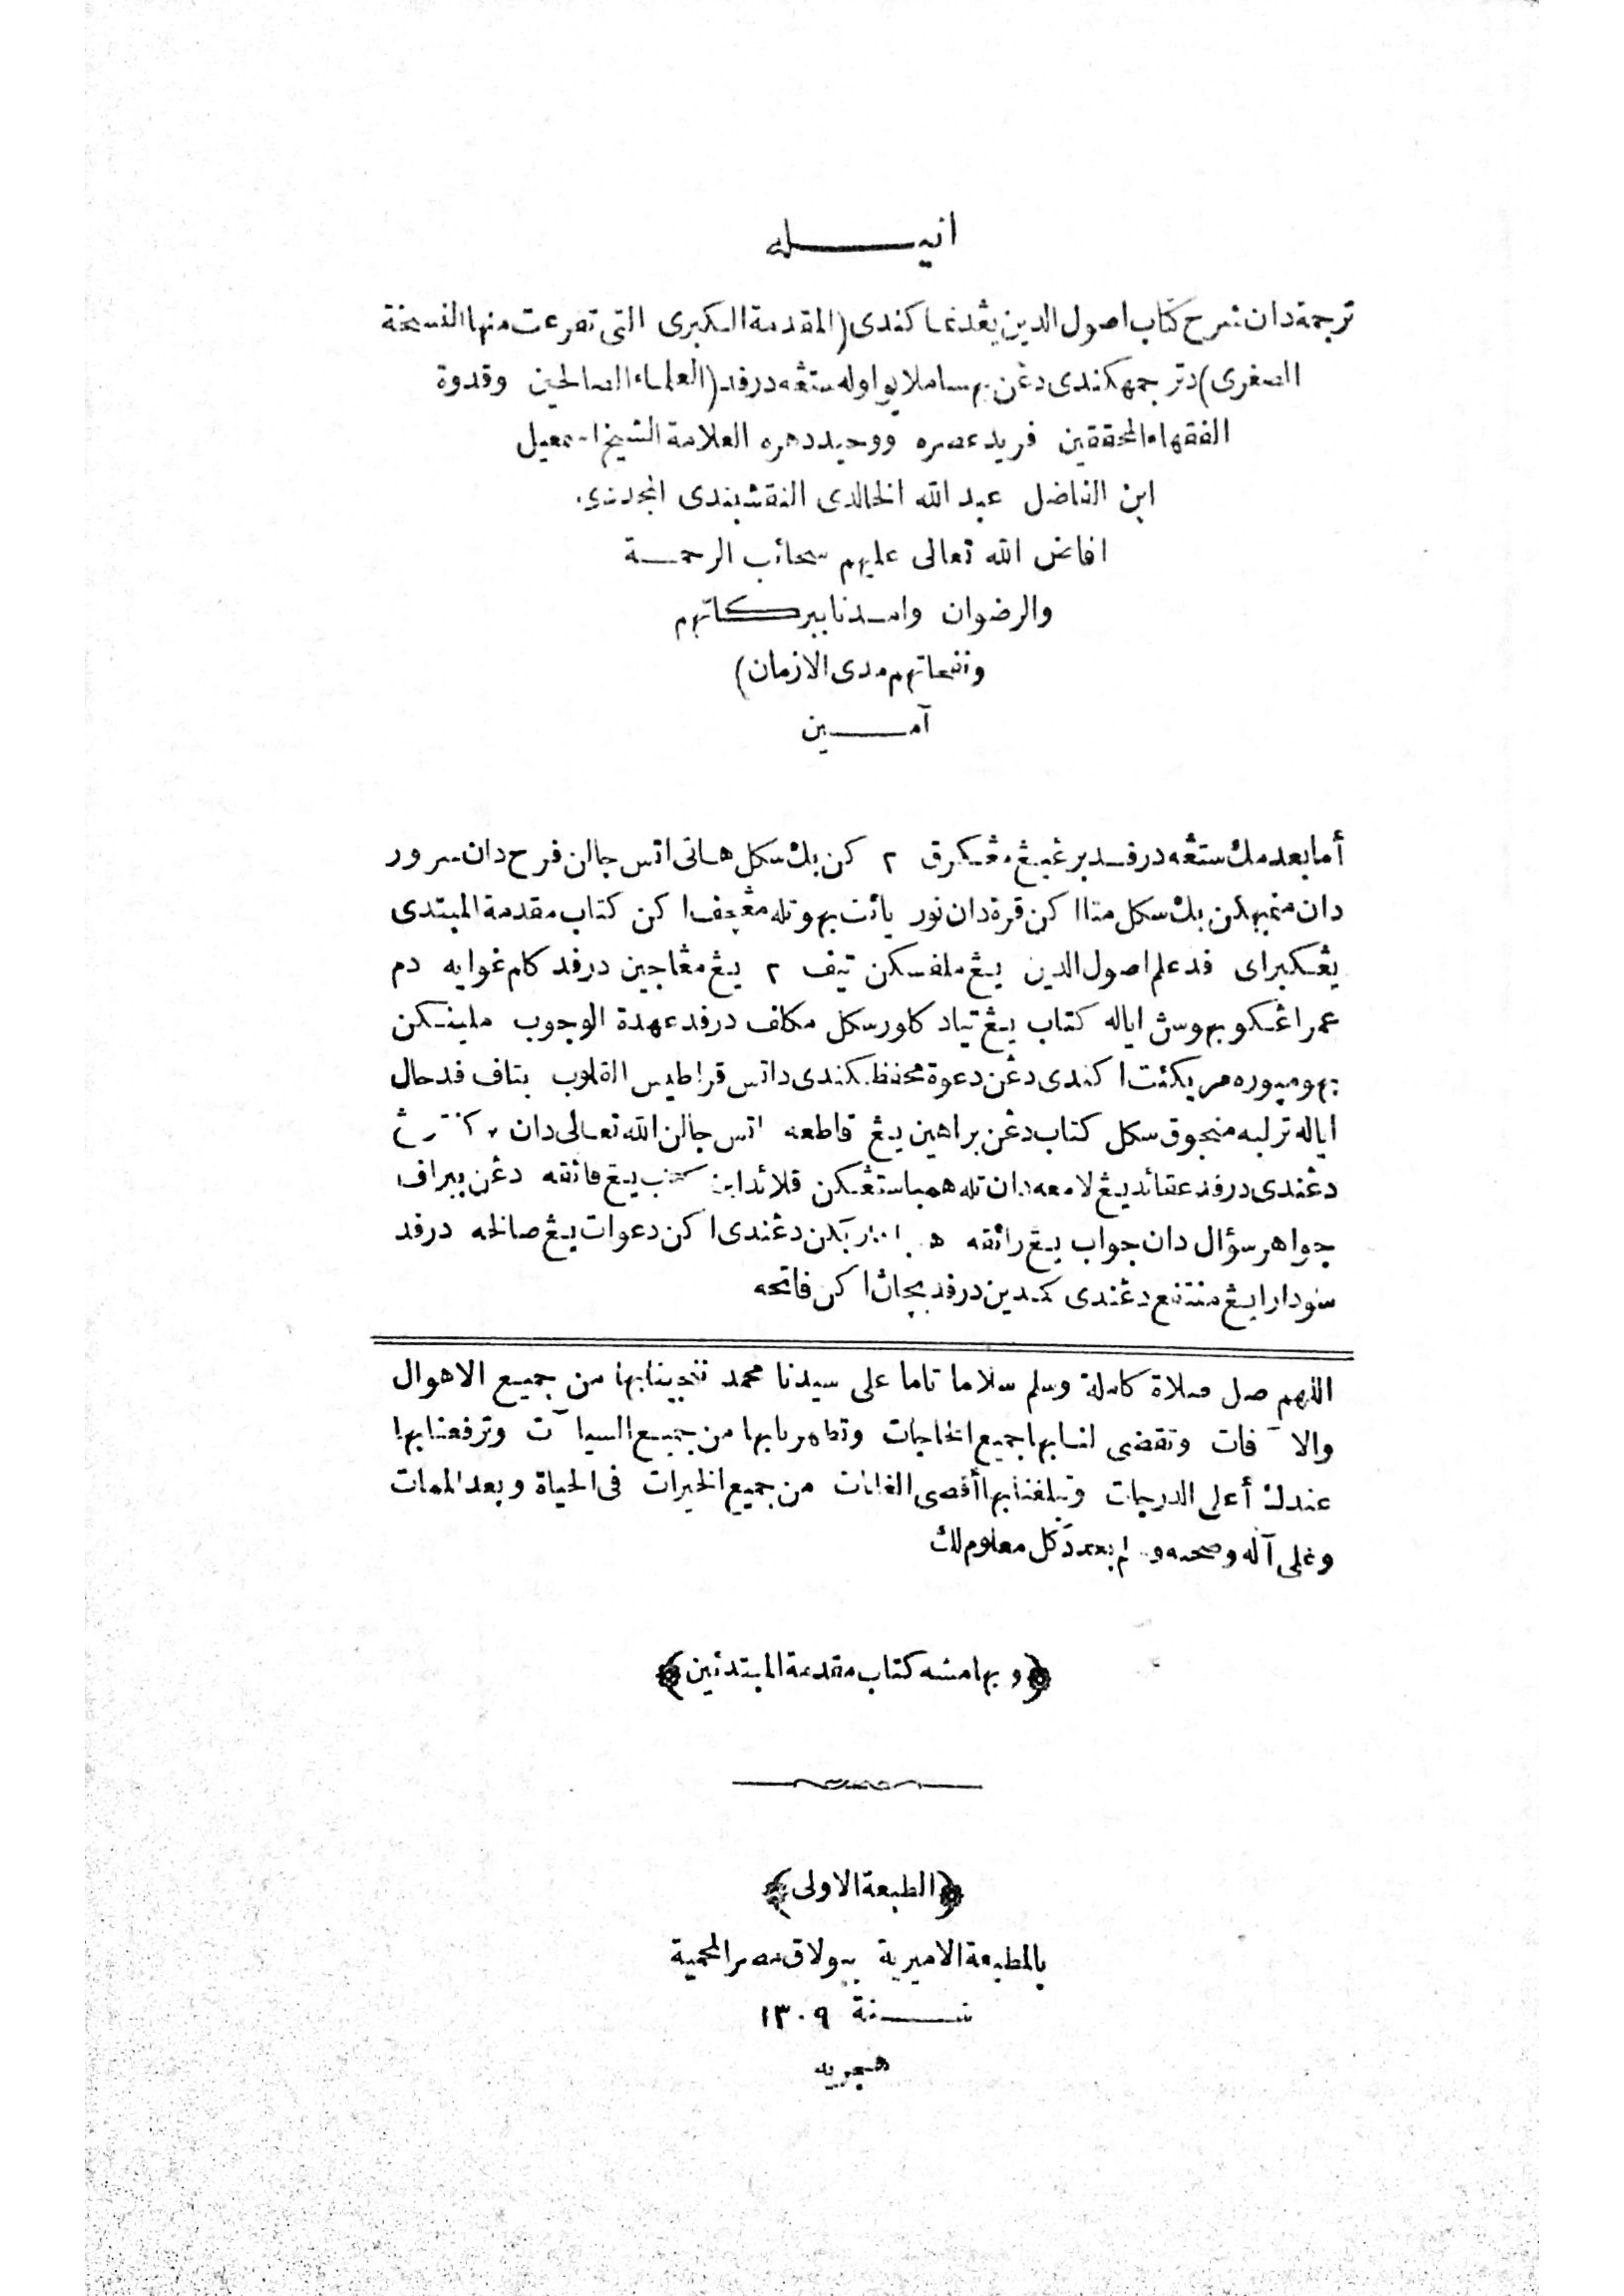 انيله
ترجمة دان شرح كتاب اصول الدين يڠدنما كندى (المقدمة الكبرى التى تفرعت منها النسخة
الصغرى) دترجمهكندى دڠن بهسا ملايو اوله ستڠه درفد (العلماء الصالحين وقدوة
الفقهاء المحققين فريد عصره ووحيد دهره العلامة الشيخ اسمعيل
ابن الفاضل عبد الله الخالدى النقشبندى
افاض الله تعالى عليهم سحائب الرحمة
والرضوان وامدنا ببركاتهم
ونفحاتهم مدى الازمان)
آمين
أما بعد مك ستڠه درفد برڠيڠ مڠكرق ٢ كن بك سكل هاتى اتس جالن فرح دان سرور
دان منمبهكن بك سكل متا اكن قرة دان نور يائت بهوتله مڠچف اكن كتاب مقدمة المبتدى
يڠكبراى فد علم اصول الدين يڠ ملفسكن تيف ٢ يڠ مڠاجين درفد كام غوايه دم
عمر اڠكو بهوسڽ اياله كتاب يڠ تياد كلور سكل مكلف درفد عهدة الوجوب ملينكن
بهو مپوره مريكئت اكندى دڠن دعوة محفظكندى داتس قراطيس القلوب بتاف فد حال
اياله ترلبه منجوق سكل كتاب دڠن براهين يڠ قاطعه اتس جالن الله تعالى دان
دڠندى درفد عقائد يڠ لامعه دان تله همبا ستڠكن قلائد يڠ فائقه دڠن ببراف
جواهر سؤال دان جواب يڠ رائقه دڠندى اكن دعوات يڠ صالحه درفد
سودارا يڠ منتفع دڠندى كمدين درفد بچاڽ اكن فاتحه
اللهم صل صلاة كاملة وسلم سلاما تاما على سيدنا محمد تنجينا بها من جميع الاهوال
والآفات وتقضى لنا بها جميع الحاجات وتطهرنا بها من جميع السيآت وترفعنا بها
عندك أعلى الدرجات وتبلغنا بها أقصى الغايات من جميع الخيرات فى الحياة وبعد الممات
وعلى آله وصحبه وسلم بعدد كل معلوم لك
﴿وبهامشه كتاب مقدمة المبتدئين﴾
﴿الطبعة الاولى﴾
بالمطبعة الاميرية ببولاق مصر المحمية
سنة ١٣٠٩
هجريه